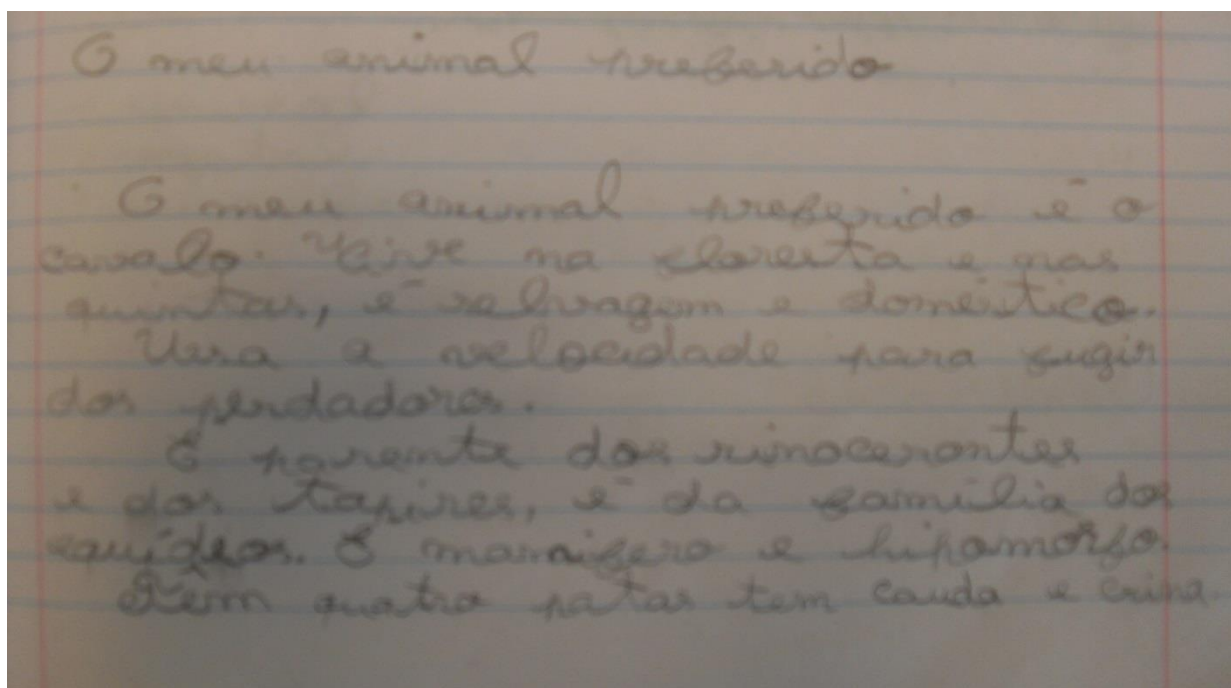 O meu animal preferido
O meu animal preferido é o
cavalo. Vive na floresta e nas
quintas, é selvagem e doméstico.
Usa a velocidade para fugir
dos perdadores.
É parente dos rinocerontes
e dos tapires, é da família dos
equídeos. É mamífero e hipomorfo.
Tem quatro patas tem cauda e crina.